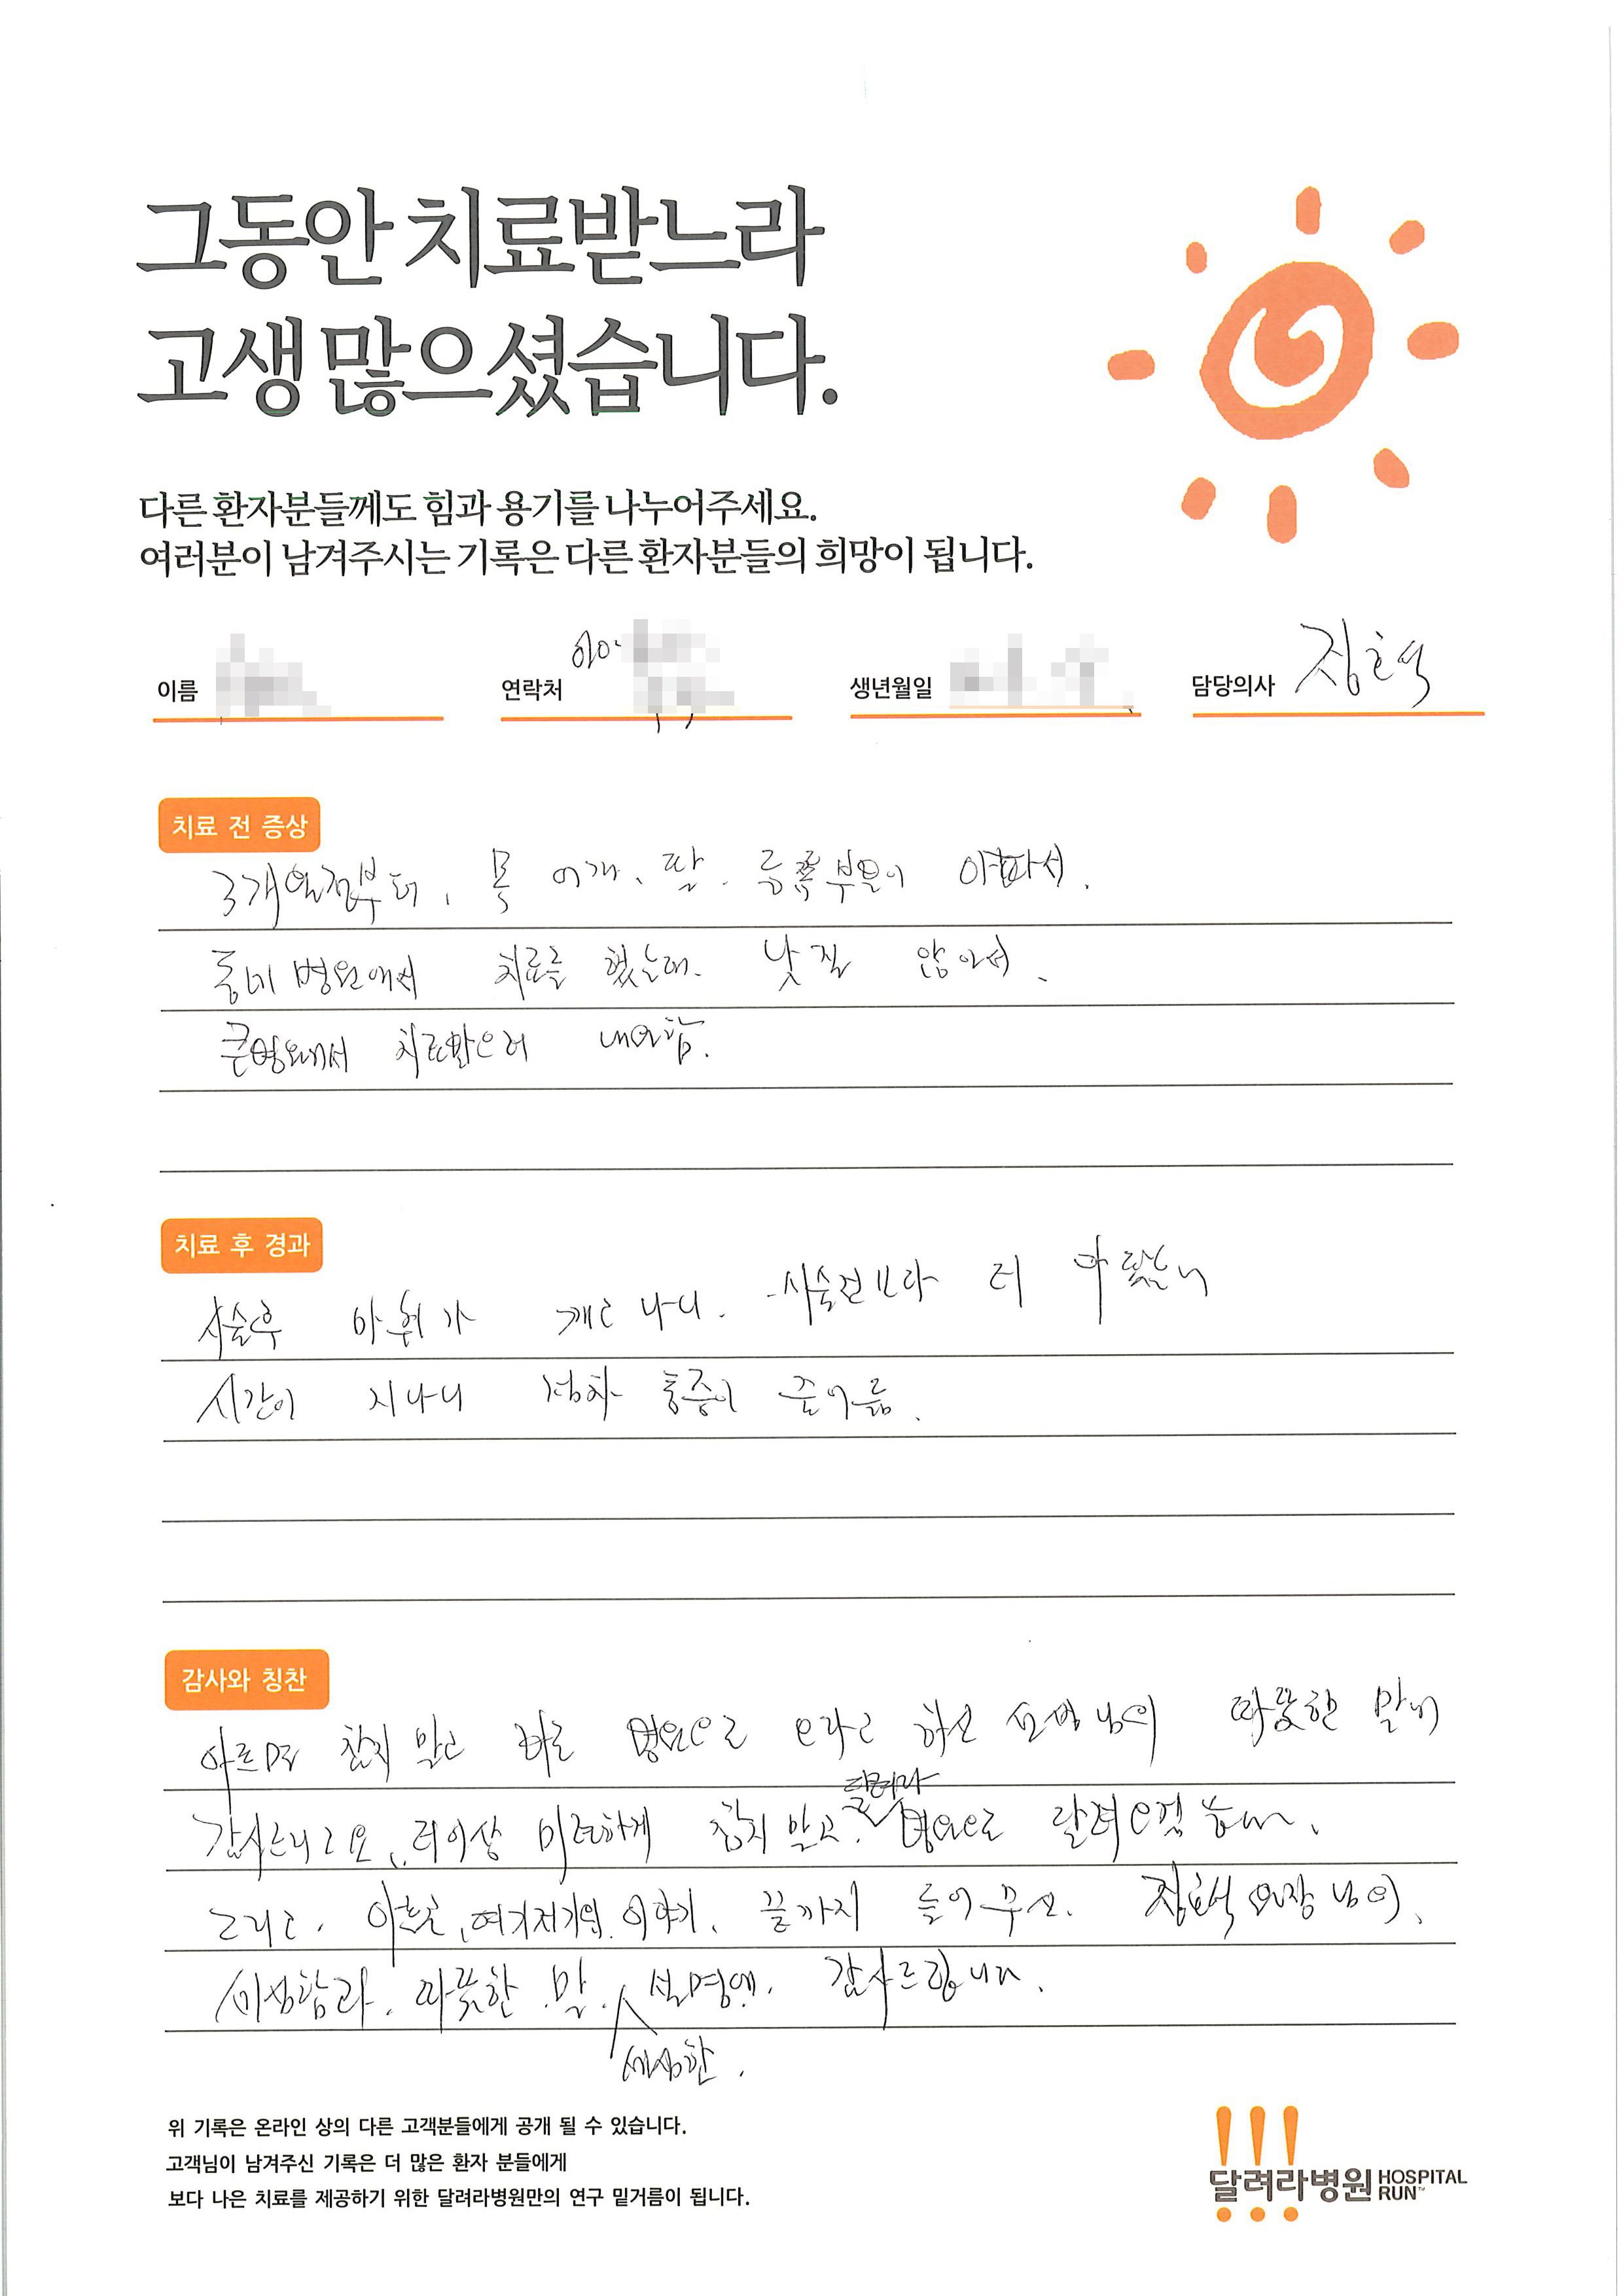 그동안 치료받느라
고생 많으셨습니다.
다른 환자분들께도 힘과 용기를 나누어주세요.
여러분이 남겨주시는 기록은 다른 환자분들의 희망이 됩니다.
이름 연락처 010- 생년월일 담당의사 정호석
치료 전 증상
3개월전부터, 목 어깨, 팔. 등쪽부분이 아파서.
동네 병원에서 치료를 했는데. 낫질 않아서.
큰병원에서 치료받으러 내원함.
치료 후 경과
시술후 마취가 깨고 나니. 시술전보다 더 아팠는데
시간이 지나니 점차 통증이 줄어듦.
감사와 칭찬
아프면 참지 말고 바로 병원으로 오라고 하신 따뜻한 말에
달려라
감사드리고요, 더이상 미련하게 참지 말고. 병원으로 달려오겠습니다.
그리고. 아픈곳, 여기저기의 이야기. 끝까지 들어주신. 정호석 원장님의,
세심함과. 따뜻한 말. 설명에. 감사드립니다.
세심한.
위 기록은 온라인 상의 다른 고객분들에게 공개 될 수 있습니다.
고객님이 남겨주신 기록은 더 많은 환자 분들에게
보다 나은 치료를 제공하기 위한 달려라병원만의 연구 밑거름이 됩니다.
달려라병원 HOSPITAL RUN™